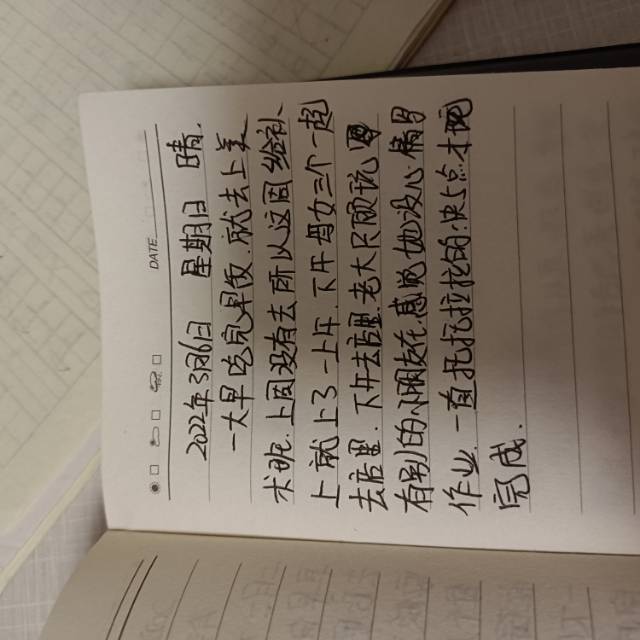 DATE
2022年3月6日 星期日 晴.
一大早吃完早饭.就去上美
术班.上周没有去所以这周给补
上就上了一上午.下午母女三个一起
去店里.下午去店里老大只顾说
有别的小朋友在感觉她没心情写
作业.一直托托拉拉的.快5点才
完成.